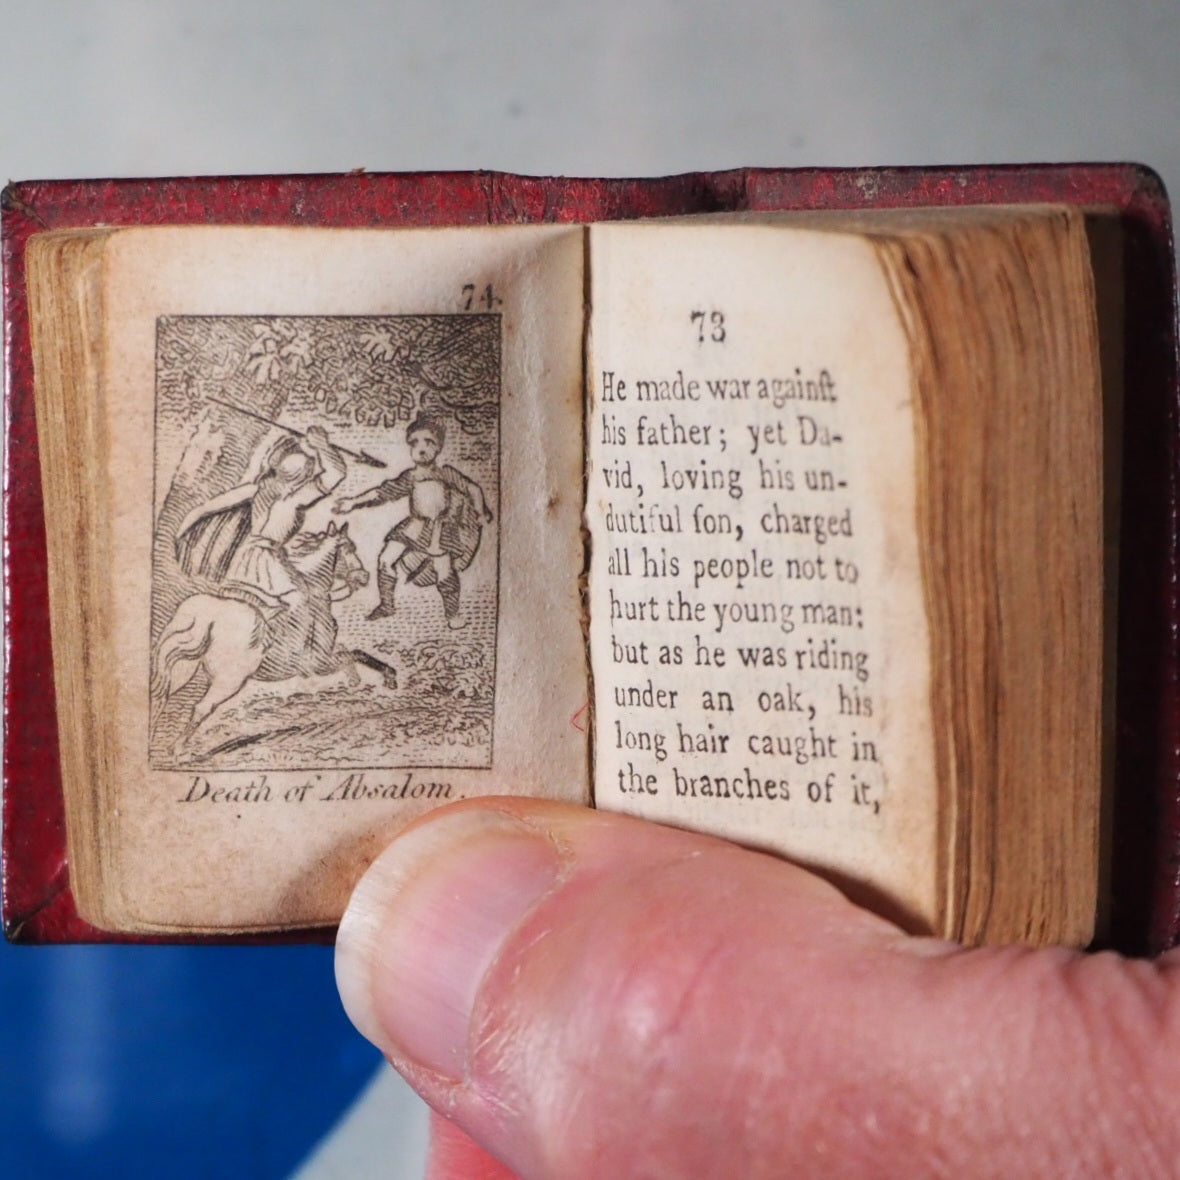 74.
Death of Absalom.
73
He made war againſt
his father; yet Da-
vid, loving his un-
dutiful ſon, charged
all his people not to
hurt the young man:
but as he was riding
under an oak, his
long hair caught in
the branches of it,